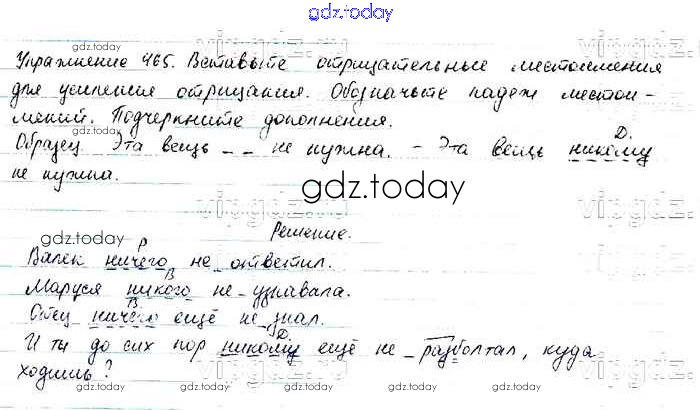 gdz.today
Упражнение 465. Вставьте отрицательные местоимения
gdz.today
для усиления отрицания. Обозначьте падеж местои-
мений. Подчеркните дополнения.
Д.
Образец. Эта вещь -- не нужна. - Эта вещь никому
не нужна.
gdz.today
gdz.today
Решение.
Р
Валек ничего не ответил.
В
Маруся никого не узнавала.
В
Отец ничего ещё не знал.
Д
И ты до сих пор никому ещё не разболтал, куда
ходишь?
gdz.today
gdz.today
gdz.today